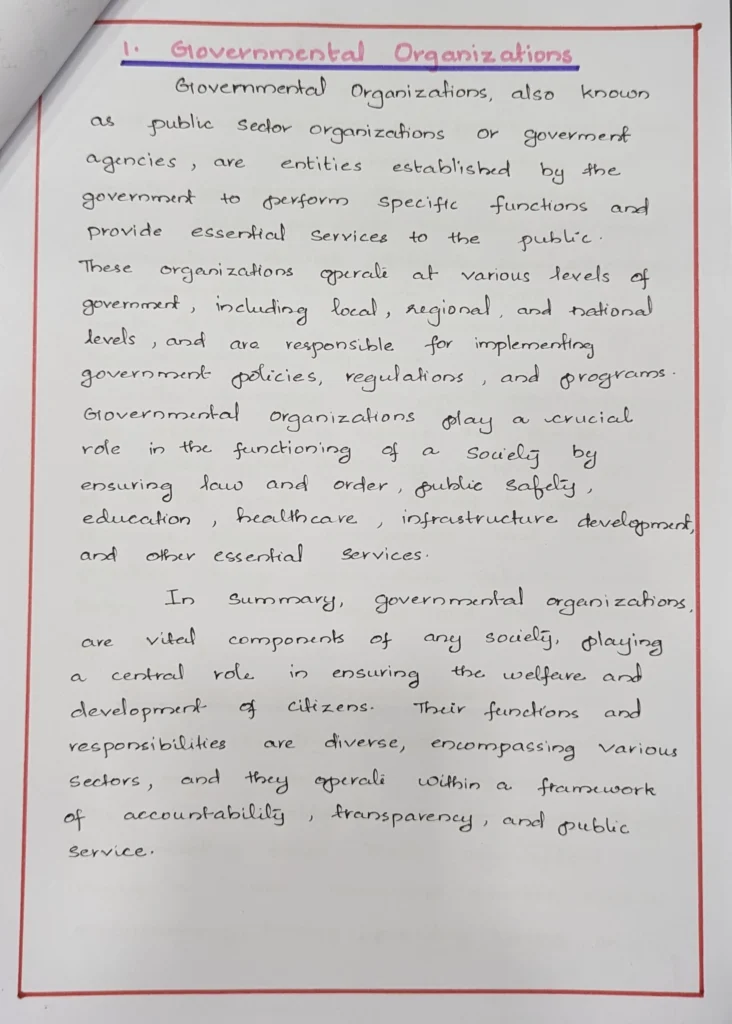 1. Governmental Organizations
Governmental Organizations, also known
as public sector organizations or goverment
agencies, are entities established by the
government to perform specific functions and
provide essential services to the public.
These organizations operate at various levels of
government, including local, regional, and national
levels, and are responsible for implementing
government policies, regulations, and programs.
Governmental organizations play a crucial
role in the functioning of a society by
ensuring law and order, public safety,
education, healthcare, infrastructure development,
and other essential services.
In summary, governmental organizations,
are vital components of any society, playing
a central role in ensuring the welfare and
development of citizens. Their functions and
responsibilities are diverse, encompassing various
sectors, and they operate within a framework
of accountability, transparency, and public
service.